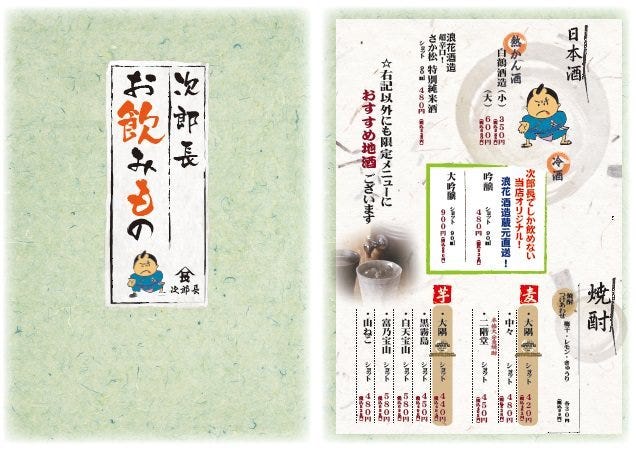 次郎長
お飲みもの
次郎長
日本酒
熱かん酒
白鶴酒造(小) 350円
(大) 600円
浪花酒造
超辛口!
さか松 特別純米酒
ショット 90ml 480円
☆右記以外にも限定メニューに
おすすめ地酒ございます
冷酒
次郎長でしか飲めない
当店オリジナル!
浪花酒造蔵元直送!
吟醸 ショット 90ml 480円
大吟醸 ショット 90ml 900円
焼酎
梅干・レモン・きゅうり 各30円
麦
大隅 ショット 420円
中々 ショット 480円
二階堂 ショット 450円
芋
大隅 ショット 440円
黒霧島 ショット 450円
白天宝山 ショット 580円
富乃宝山 ショット 580円
山ねこ ショット 480円